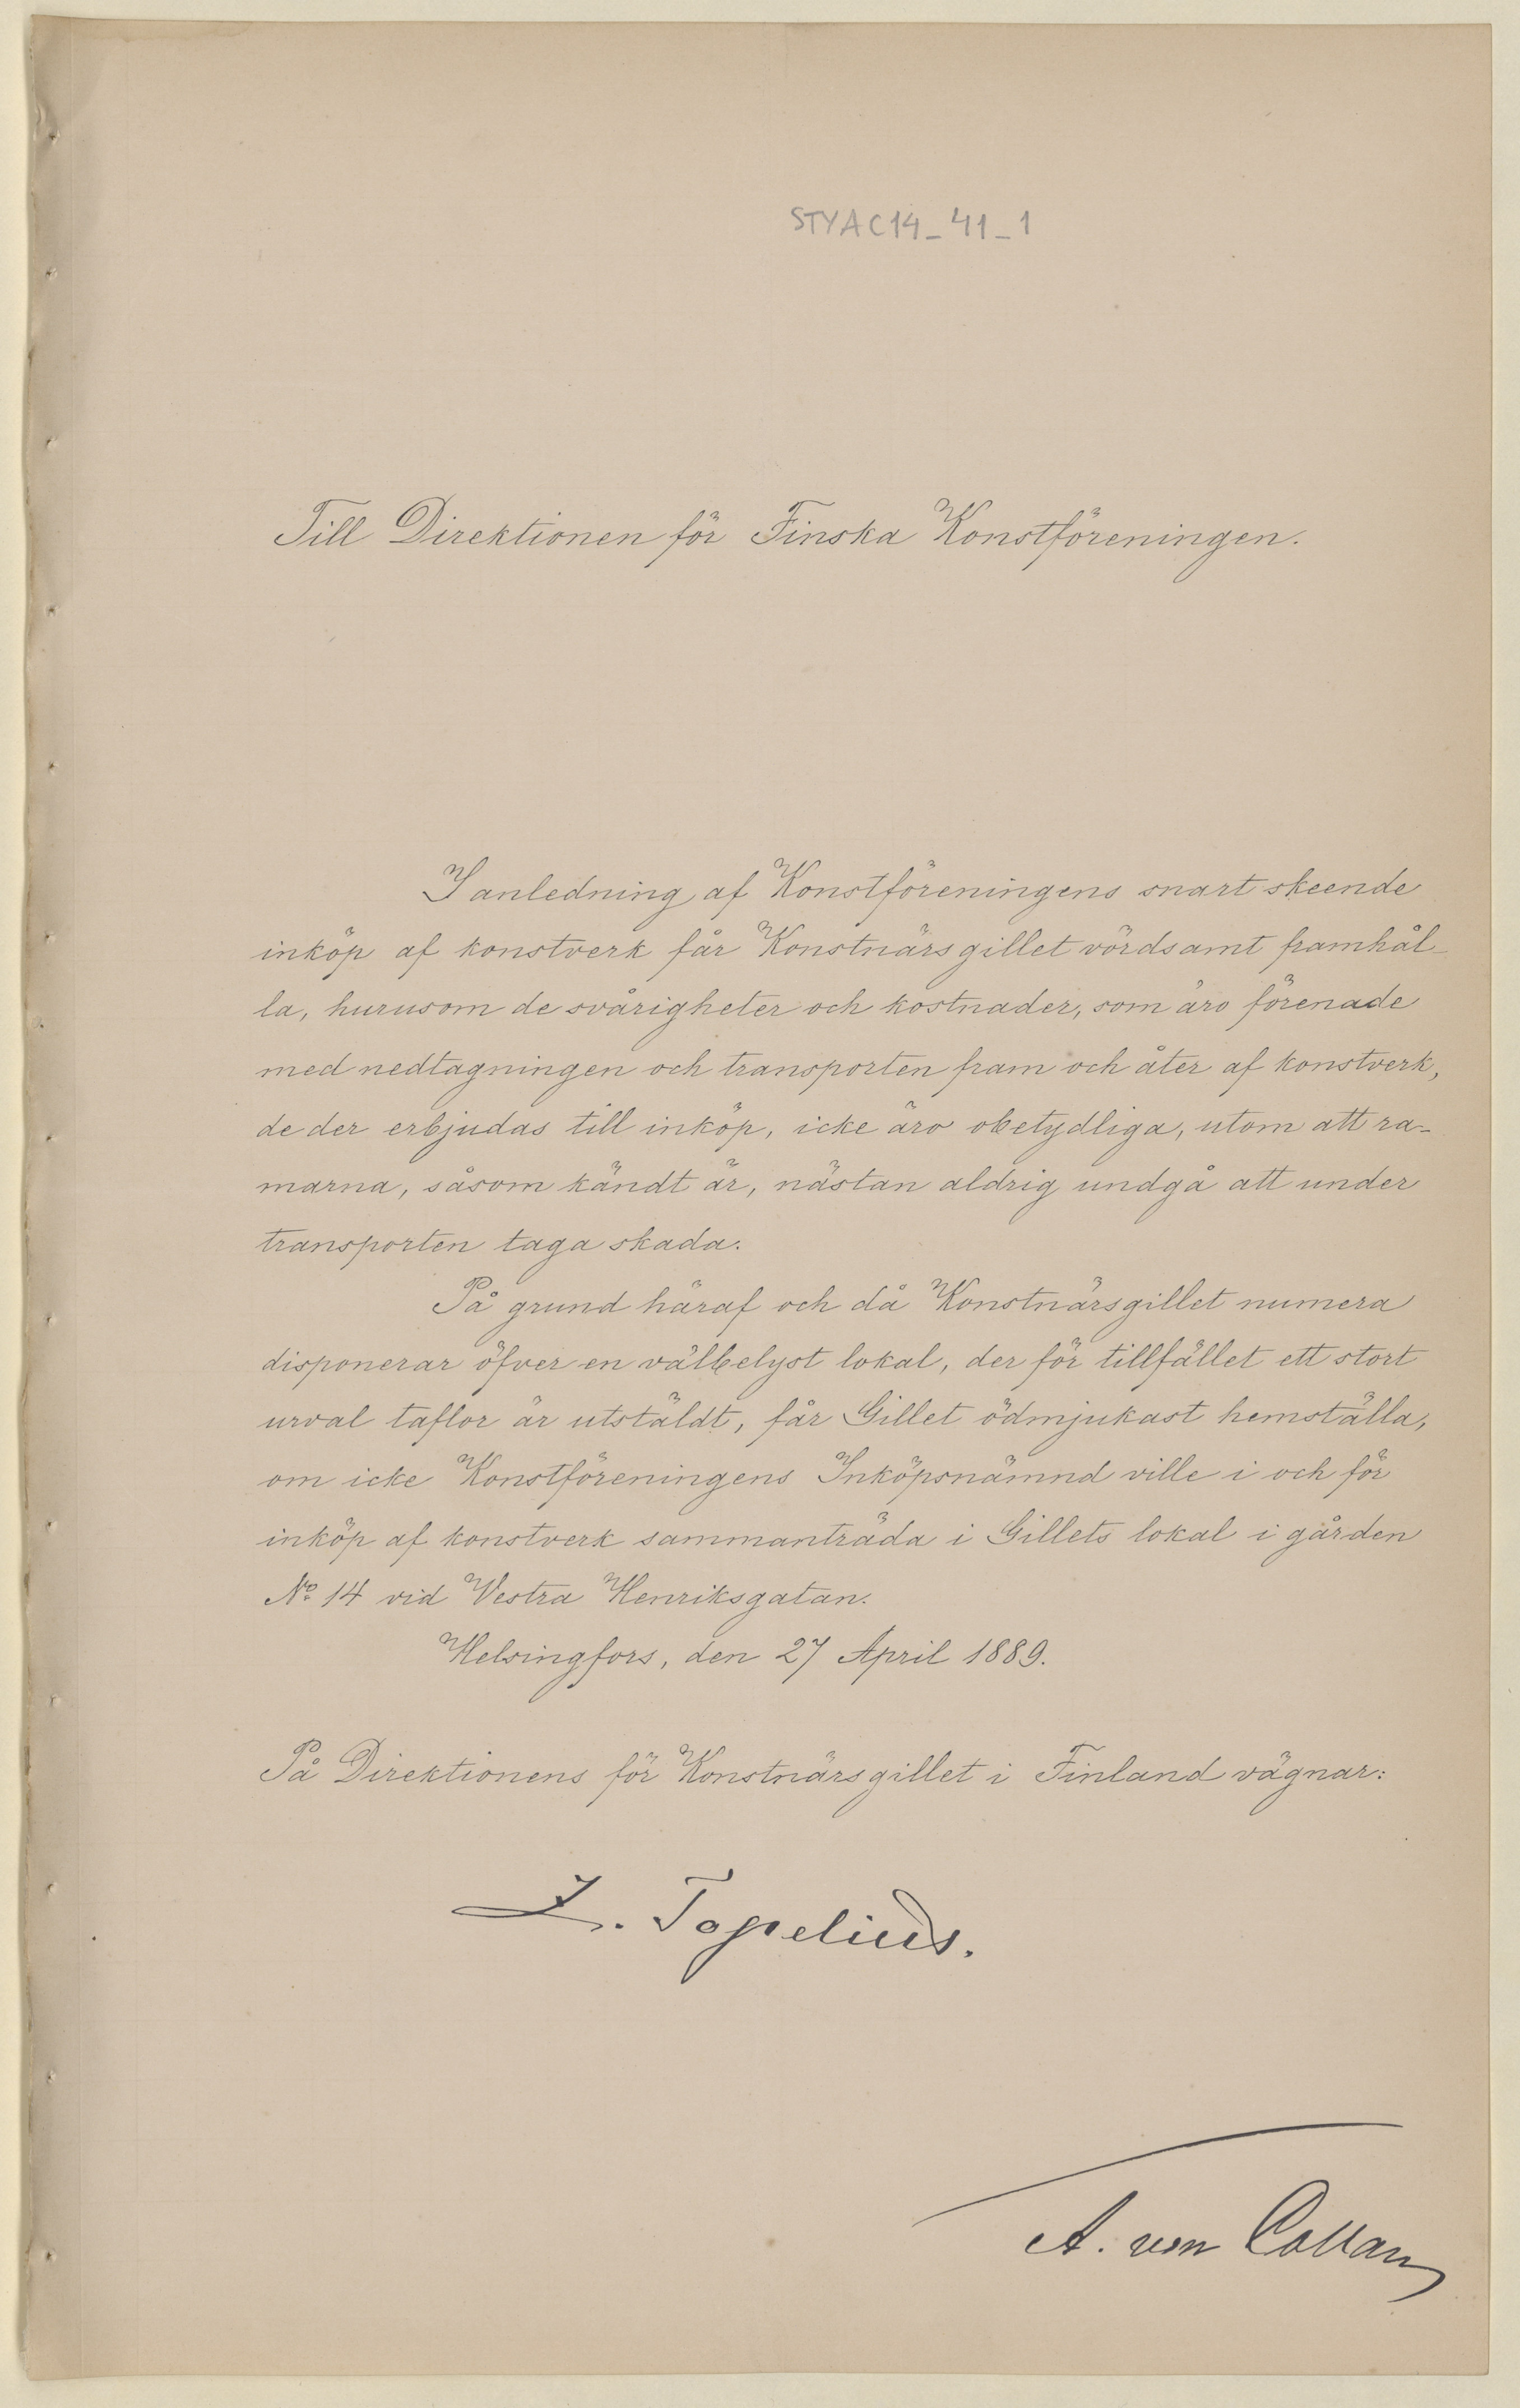 STYAC14_41_1
Till Direktionen för Finska Konstföreningen.
I anledning af Konstföreningens snart skeende
inköp af konstverk får Konstnärsgillet vördsamt framhål-
la, hurusom de svårigheter och kostnader, som äro förenade
med nedtagningen och transporten fram och åter af konstverk,
de der erbjudas till inköp, icke äro obetydliga, utom att ra-
marna, såsom kändt är, nästan aldrig undgå att under
transporten taga skada.
På grund häraf och då Konstnärsgillet numera
disponerar öfver en välbelyst lokal, der för tillfället ett stort
urval taflor är utstäldt, får Gillet ödmjukast hemställa,
om icke Konstföreningens Inköpsnämnd ville i och för
inköp af konstverk sammanträda i Gillets lokal i gården
No 14 vid Vestra Henriksgatan.
Helsingfors, den 27 April 1889.
På Direktionens för Konstnärsgillet i Finland vägnar:
Z. Topelius.
A. von Collan